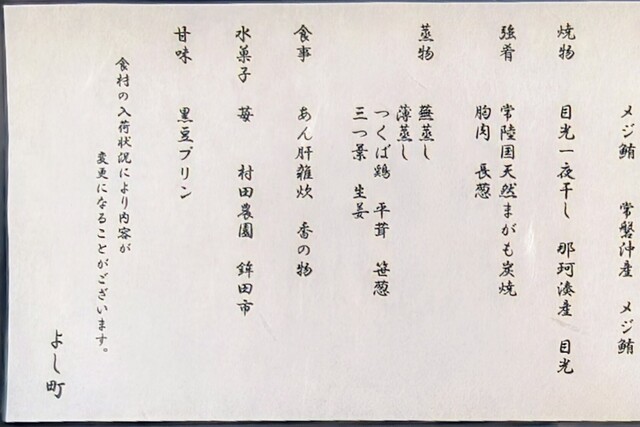 メジ鮪 常磐沖産 メジ鮪
焼物 目光一夜干し 那珂湊産 目光
強肴 常陸国天然まがも炭焼
胸肉 長葱
蒸物 蕪蒸し
薄蒸し
つくば鶏 平茸 笹葱
三つ葉 生姜
食事 あん肝雑炊 香の物
水菓子 苺 村田農園 鉾田市
甘味 黒豆プリン
食材の入荷状況により内容が
変更になることがございます。
よし町